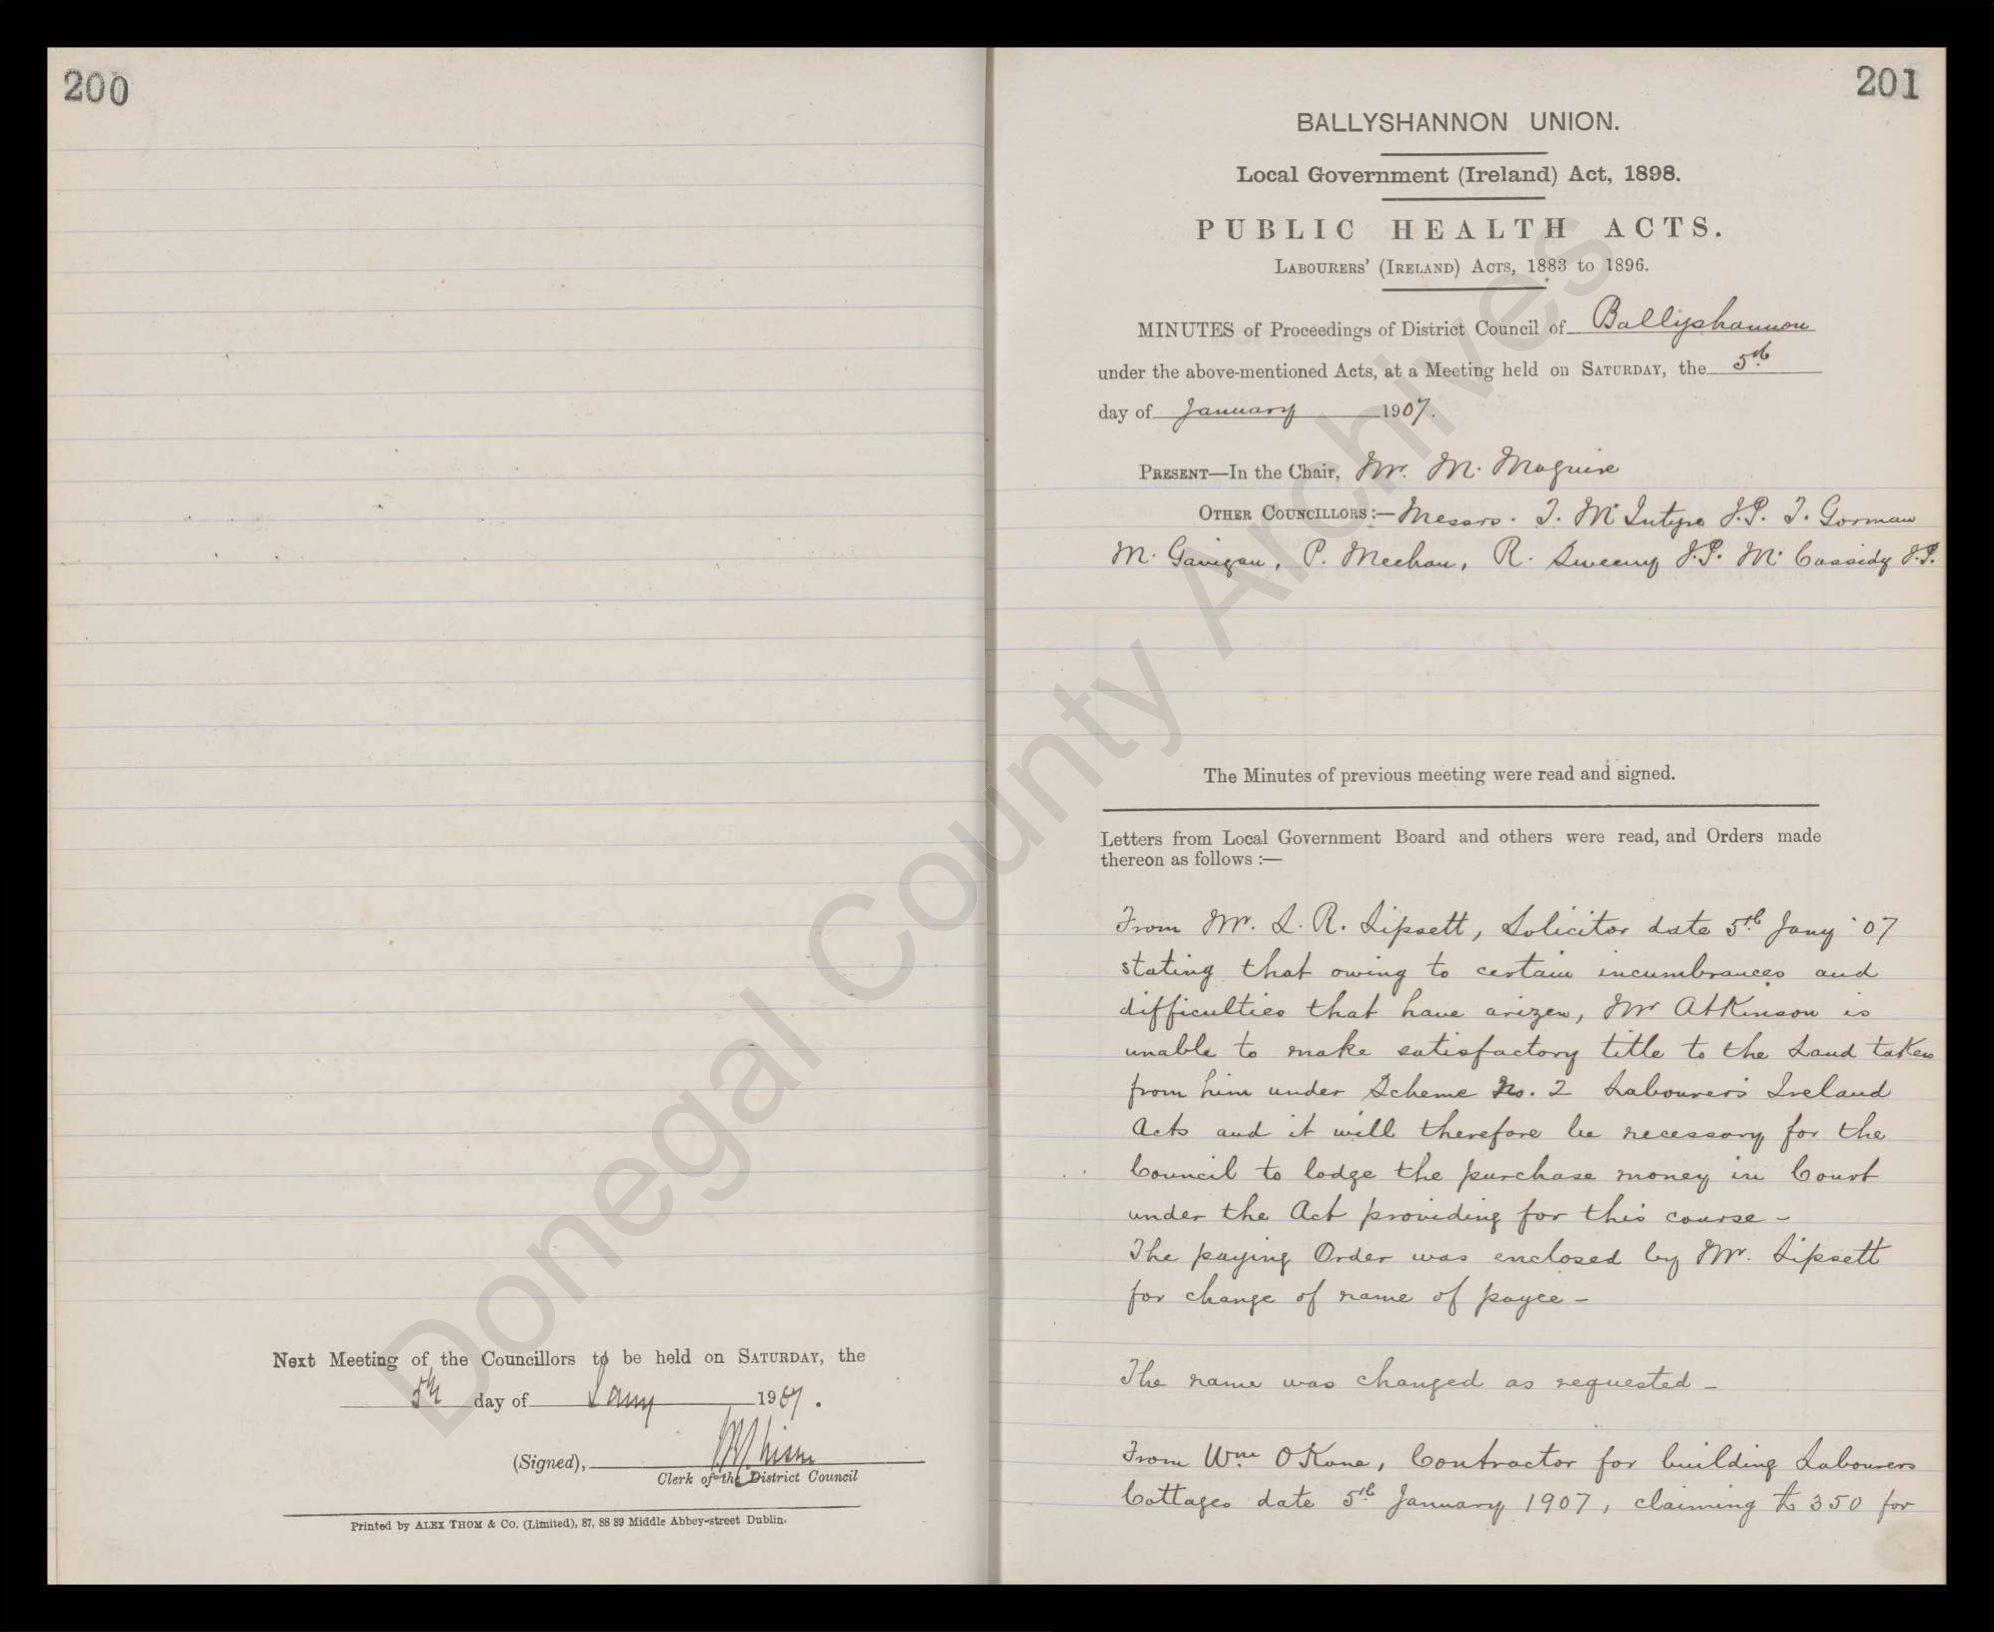 200
Next Meeting of the Councillors to be held on SATURDAY, the
5th day of Jany 1907.
(Signed),
Clerk of the District Council
Printed by ALEX THOM & Co. (Limited), 87, 88 89 Middle Abbey-street Dublin.
201
BALLYSHANNON UNION.
Local Government (Ireland) Act, 1898.
PUBLIC HEALTH ACTS.
LABOURERS' (IRELAND) ACTS, 1883 to 1896.
MINUTES of Proceedings of District Council of Ballyshannon
under the above-mentioned Acts, at a Meeting held on SATURDAY, the 5th
day of January 1907.
PRESENT—In the Chair, Mr. M. Maguire
OTHER COUNCILLORS:— Messrs. T. McIntyre J.P. T. Gorman
M. Gavigan, P. Meehan, R. Sweeny J.P. M. Cassidy J.P.
The Minutes of previous meeting were read and signed.
Letters from Local Government Board and others were read, and Orders made
thereon as follows :—
From Mr. L. R. Lipsett, Solicitor date 5th Jany '07
stating that owing to certain incumbrances and
difficulties that have arizen, Mr Atkinson is
unable to make satisfactory title to the Land taken
from him under Scheme No. 2 Labourers Ireland
Acts and it will therefore be necessary for the
Council to lodge the purchase money in Court
under the Act providing for this course -
The paying Order was enclosed by Mr. Lipsett
for change of name of payee -
The name was changed as requested -
From Wm O'Kane, Contractor for building Labourers
Cottages date 5th January 1907, claiming £350 for
Donegal County Archives